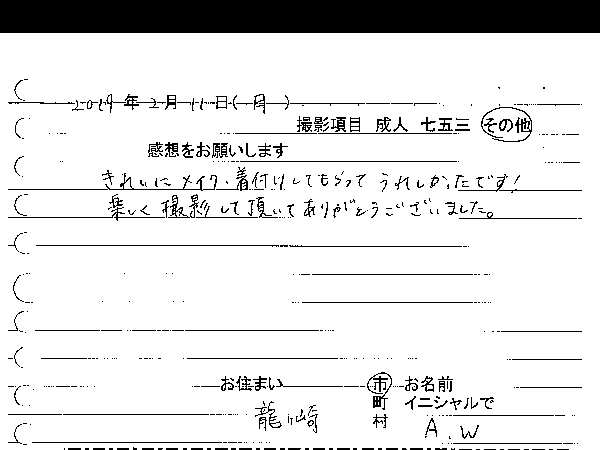 2019年2月11日(月)
撮影項目 成人 七五三 その他
感想をお願いします
きれいにメイク、着付けしてもらって うれしかったです!
楽しく撮影して頂いてありがとうございました。
お住まい 市 お名前
町 イニシャルで
龍ヶ崎 村 A.W